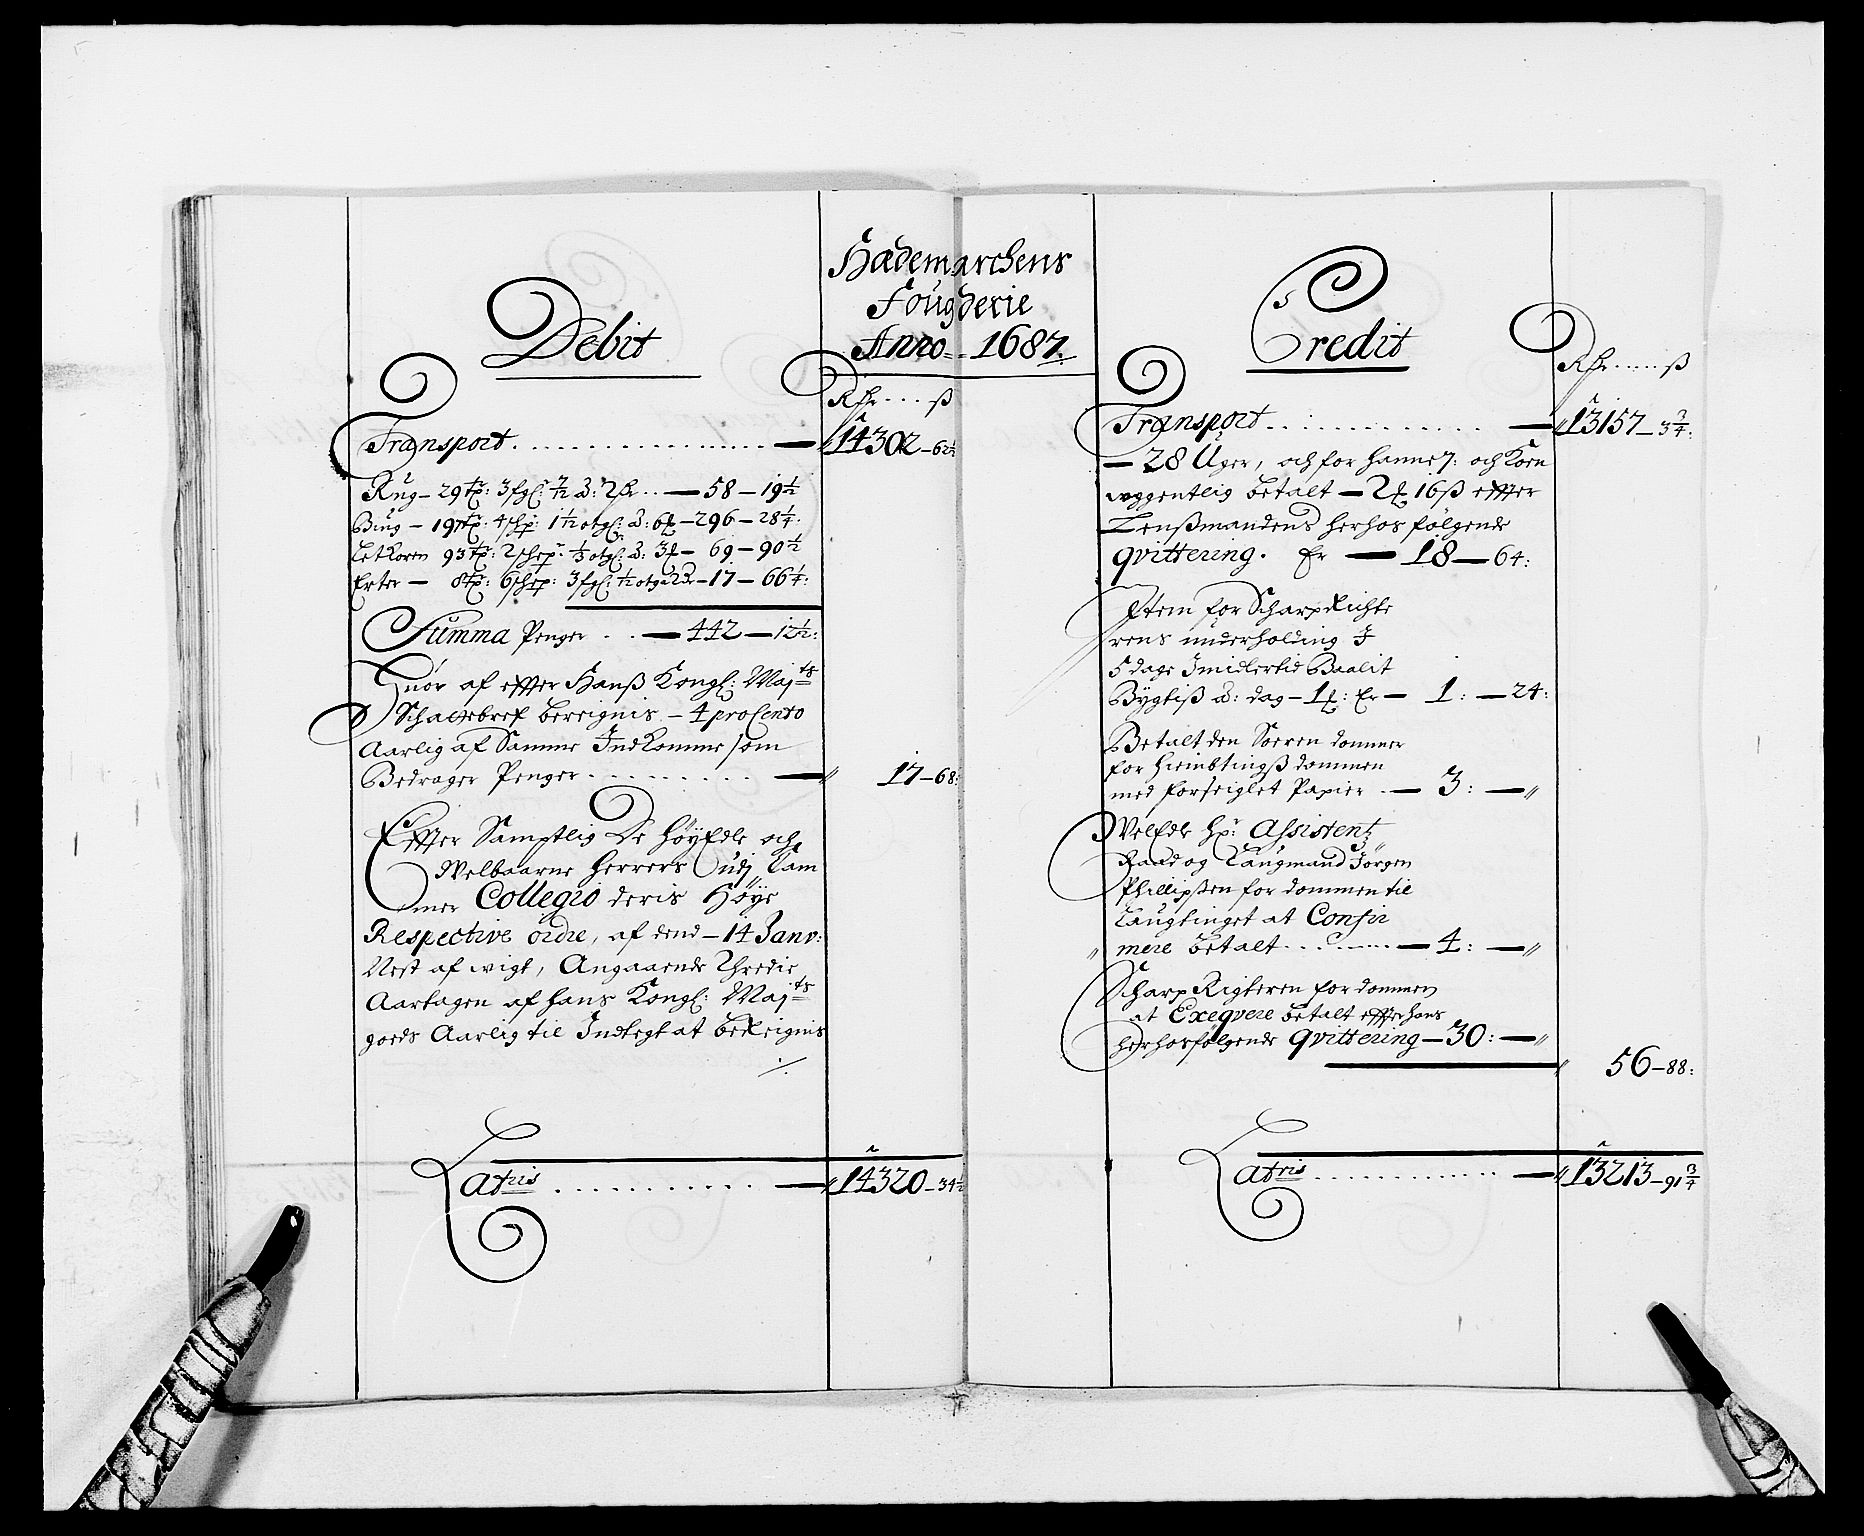 Hædemarchens
Fougderie
Anno 1687.
Debit
Rdr ß
Transport 14302 - 62½
Rug - 29 tr: 3 fgl: ½ à: 2 Rdr - 58 - 19½
Biug - 197 tr: 4 schp: 1½ otgl: à: - 296 - 28¼
Letkoren 93 tr: 2 schep: ⅓ otgl: à: - 69 - 90½
Erter - 8 tr: 6 schp: 3 fgl: ½ otg - 17 - 66¼:
Summa Penger - 442 - 12½:
huor af effter Hanß Kongl: Majts
Schaettebref bereignis - 4 proCento
Aarlig af Samme Indkomme som
Bedrager Penger 17 - 68:
Effter Samptlig De HøyEdle och
Welbaarne Herrers udj Cam
mer Collegio deris Høye
Respective ordre, af dend - 14 Janv:
Nest af wigt, Angaaende Thredie
Aartagen af hans Kongl: Majts
goeds Aarlig til Indtegt at bereignis
Latris 14320 - 34½
Credit
Rdr ß
Transport 13157 - 3¾:
- 28 Uger, och for hannem: och Koen
wggentlig betalt - 16ß effter
Lenßmandens herhos følgende
qvittering. Er - 18 - 64:
Item for ScharpRichte
rens underholding I
5 dage Imidlertid Baalit
Bygtiß à: dag - 1: Er - 1: - 24:
Betalt den Soeren dommer
for hiembtingß dommen
med forseiglet Papier - 3: -
WelEdle Hr: Assistentz
Raad og Laugmand Jørgen
Phillipßen for dommen til
Laugtinget at Confir
mere betalt - 4: -
Scharp Rigteren for dommen
at Exeqvere betalt effter hans
herhosfølgende qvittering - 30: -
56 - 88:
Latris 13213 - 91¾